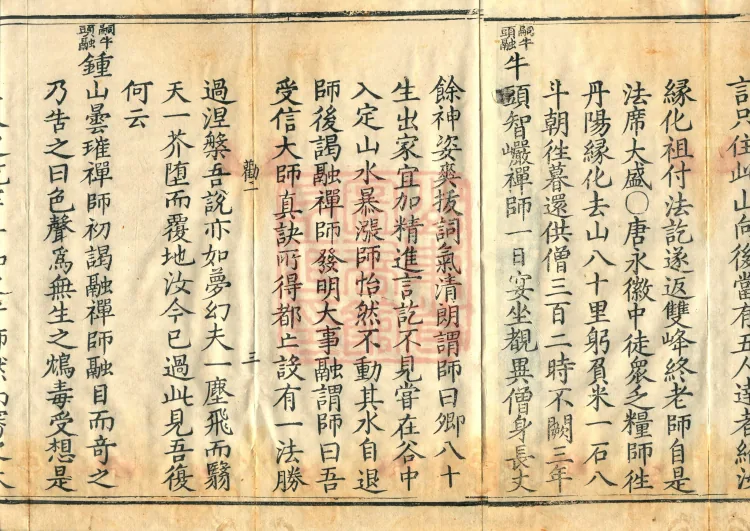 言只住此山向後當有五人達者紹汝
緣化祖付法訖遂返雙峰終老師自是
法席大盛○唐永徽中徒眾乏糧師徃
丹陽緣化去山八十里躬負米一石八
斗朝徃暮還供僧三百二時不闕三年
嗣牛
頭融
牛頭智巖禪師一日宴坐觀異僧身長丈
餘神姿爽拔詞氣清朗謂師曰卿八十
生出家宜加精進言訖不見甞在谷中
入定山水暴漲師怡然不動其水自退
師後謁融禪師發明大事融謂師曰吾
受信大師真訣所得都亡設有一法勝
勸二
三
過涅槃吾說亦如夢幻夫一塵飛而翳
天一芥堕而覆地汝今已過此見吾復
何云
嗣牛
頭融
鍾山曇璀禪師初謁融禪師融目而奇之
乃告之曰色聲為無生之鴆毒受想是